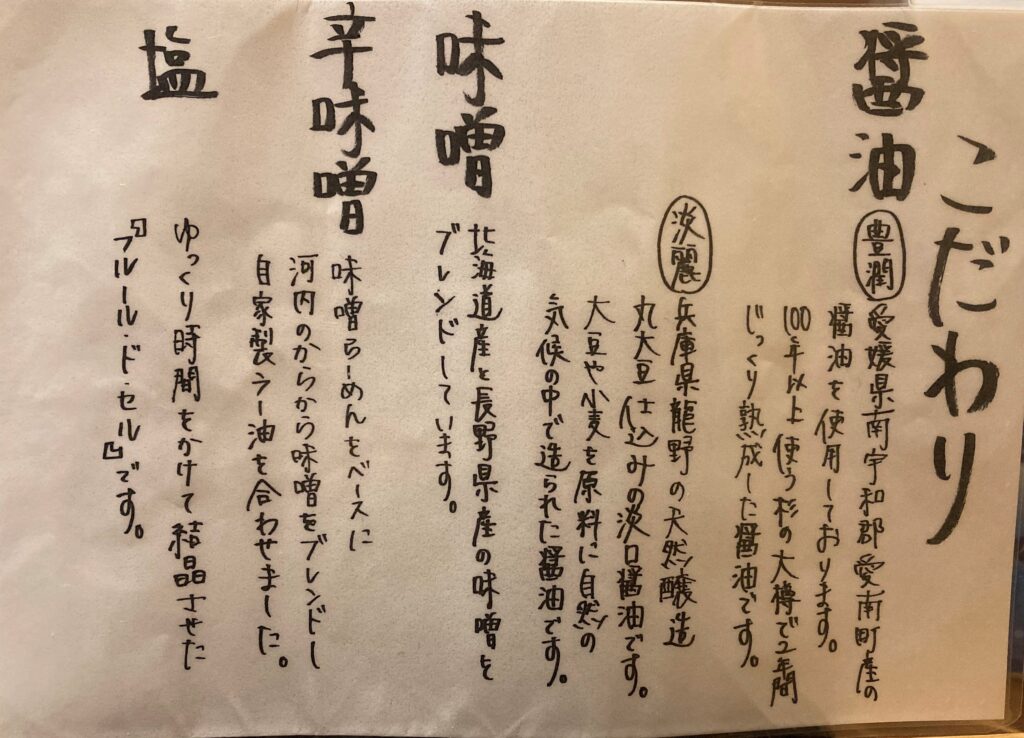 こだわり
醤油
豊潤
愛媛県南宇和郡愛南町産の
醤油を使用しております。
100年以上使う杉の大樽で2年間
じっくり熟成した醤油です。
淡麗
兵庫県龍野の天然醸造
丸大豆仕込みの淡口醤油です。
大豆や小麦を原料に自然の
気候の中で造られた醤油です。
味噌
北海道産と長野県産の味噌を
ブレンドしています。
辛味噌
味噌らーめんをベースに
河内のからから味噌をブレンドし
自家製ラー油を合わせました。
塩
ゆっくり時間をかけて結晶させた
『フルール・ド・セル』です。